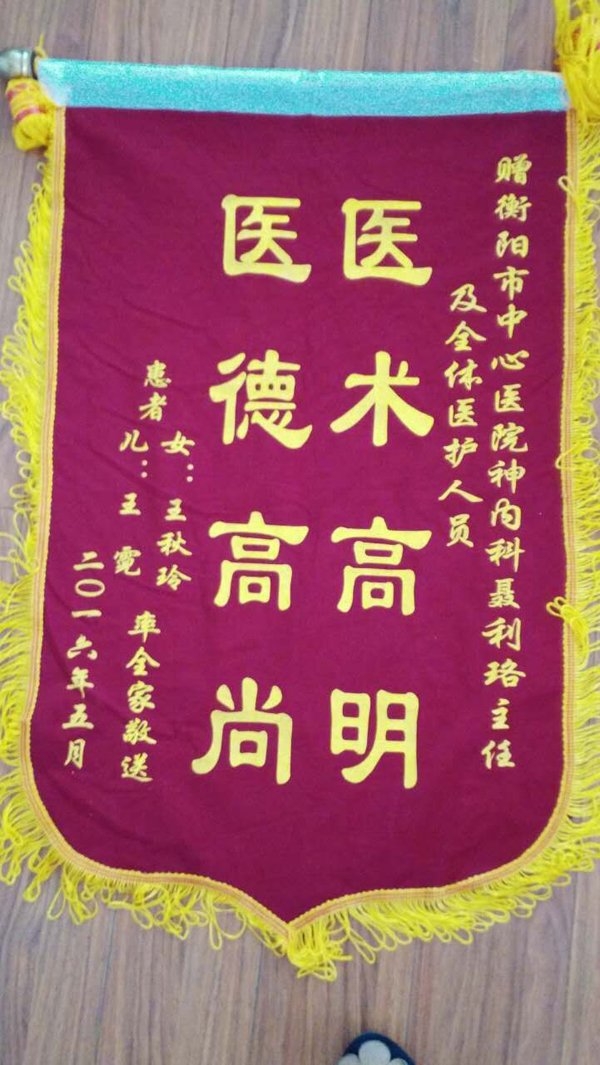 赠衡阳市中心医院神内科聂利珞主任
及全体医护人员
医术高明
医德高尚
患者
女：王秋玲
儿：王霓
率全家敬送
二〇一六年五月